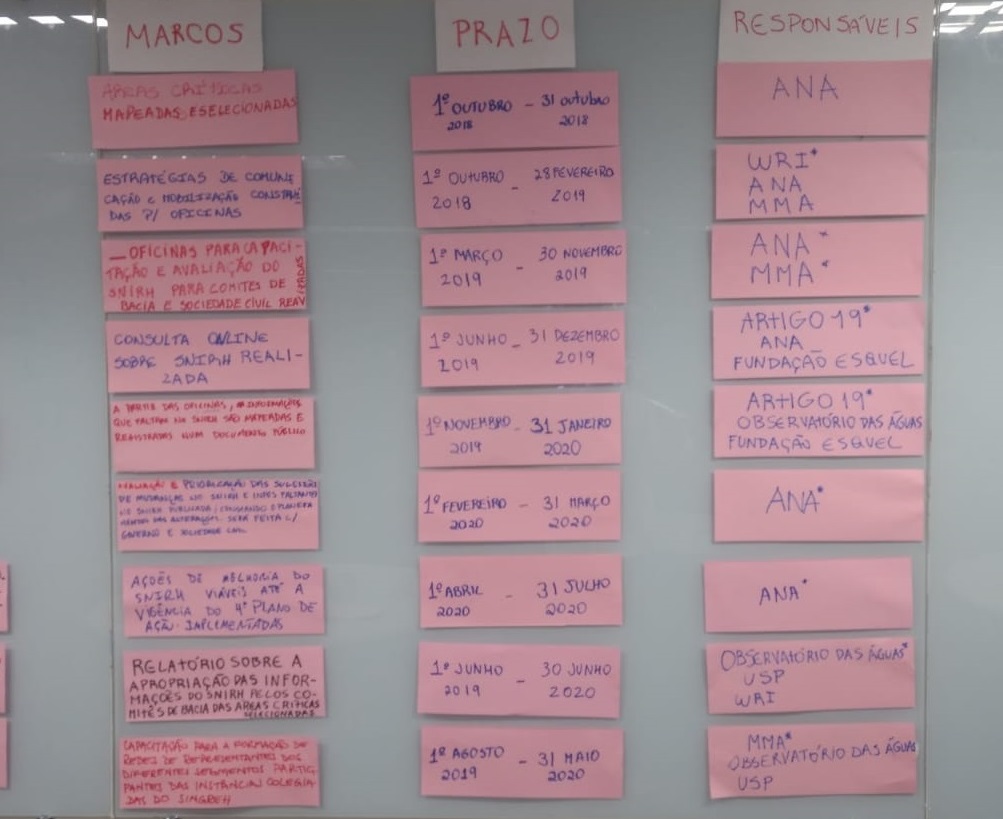 MARCOS
PRAZO
RESPONSÁVEIS
ÁREAS CRÍTICAS
MAPEADAS E SELECIONADAS
1º OUTUBRO - 31 OUTUBRO
2018 2018
ANA
ESTRATÉGIAS DE COMUNI
CAÇÃO E MOBILIZAÇÃO CONSTRUÍ
DAS P/ OFICINAS
1º OUTUBRO - 28 FEVEREIRO
2018 2019
WRI*
ANA
MMA
OFICINAS PARA CAPACI-
TAÇÃO E AVALIAÇÃO DO
SNIRH PARA COMITES DE
BACIA E SOCIEDADE CIVIL REALIZADAS
1º MARÇO - 30 NOVEMBRO
2019 2019
ANA*
MMA*
CONSULTA ONLINE
SOBRE SNIRH REALI-
ZADA
1º JUNHO - 31 DEZEMBRO
2019 2019
ARTIGO 19*
ANA
FUNDAÇÃO ESQUEL
A PARTIR DAS OFICINAS, AS INFORMAÇÕES
QUE FALTAM NO SNIRH SÃO MAPEADAS E
REGISTRADAS NUM DOCUMENTO PÚBLICO
1º NOVEMBRO - 31 JANEIRO
2019 2020
ARTIGO 19*
OBSERVATÓRIO DAS ÁGUAS
FUNDAÇÃO ESQUEL
AVALIAÇÃO E PRIORIZAÇÃO DAS SUGESTÕES
DE MUDANÇAS NO SNIRH E INFOS FALTANTES
NO SNIRH PUBLICADA; E PLANEJA
MENTO DAS ALTERAÇÕES SERÁ FEITA C/
GOVERNO E SOCIEDADE CIVIL
1º FEVEREIRO - 31 MARÇO
2020 2020
ANA*
AÇÕES DE MELHORIA DO
SNIRH VIÁVEIS ATÉ A
VIGÊNCIA DO 4º PLANO DE
AÇÃO IMPLEMENTADAS
1º ABRIL - 31 JULHO
2020 2020
ANA*
RELATÓRIO SOBRE A
APROPRIAÇÃO DAS INFOR-
MAÇÕES DO SNIRH PELOS CO-
MITÊS DE BACIA DAS AREAS CRÍTICAS
SELECIONADAS
1º JUNHO - 30 JUNHO
2019 2020
OBSERVATÓRIO DAS ÁGUAS*
USP
WRI
CAPACITAÇÃO PARA A FORMAÇÃO DE
REDES DE REPRESENTANTES DOS
DIFERENTES SEGMENTOS PARTICI-
PANTES DAS INSTÂNCIAS COLEGIA-
DAS DO SINGREH
1º AGOSTO - 31 MAIO
2019 2020
MMA*
OBSERVATÓRIO DAS ÁGUAS
USP